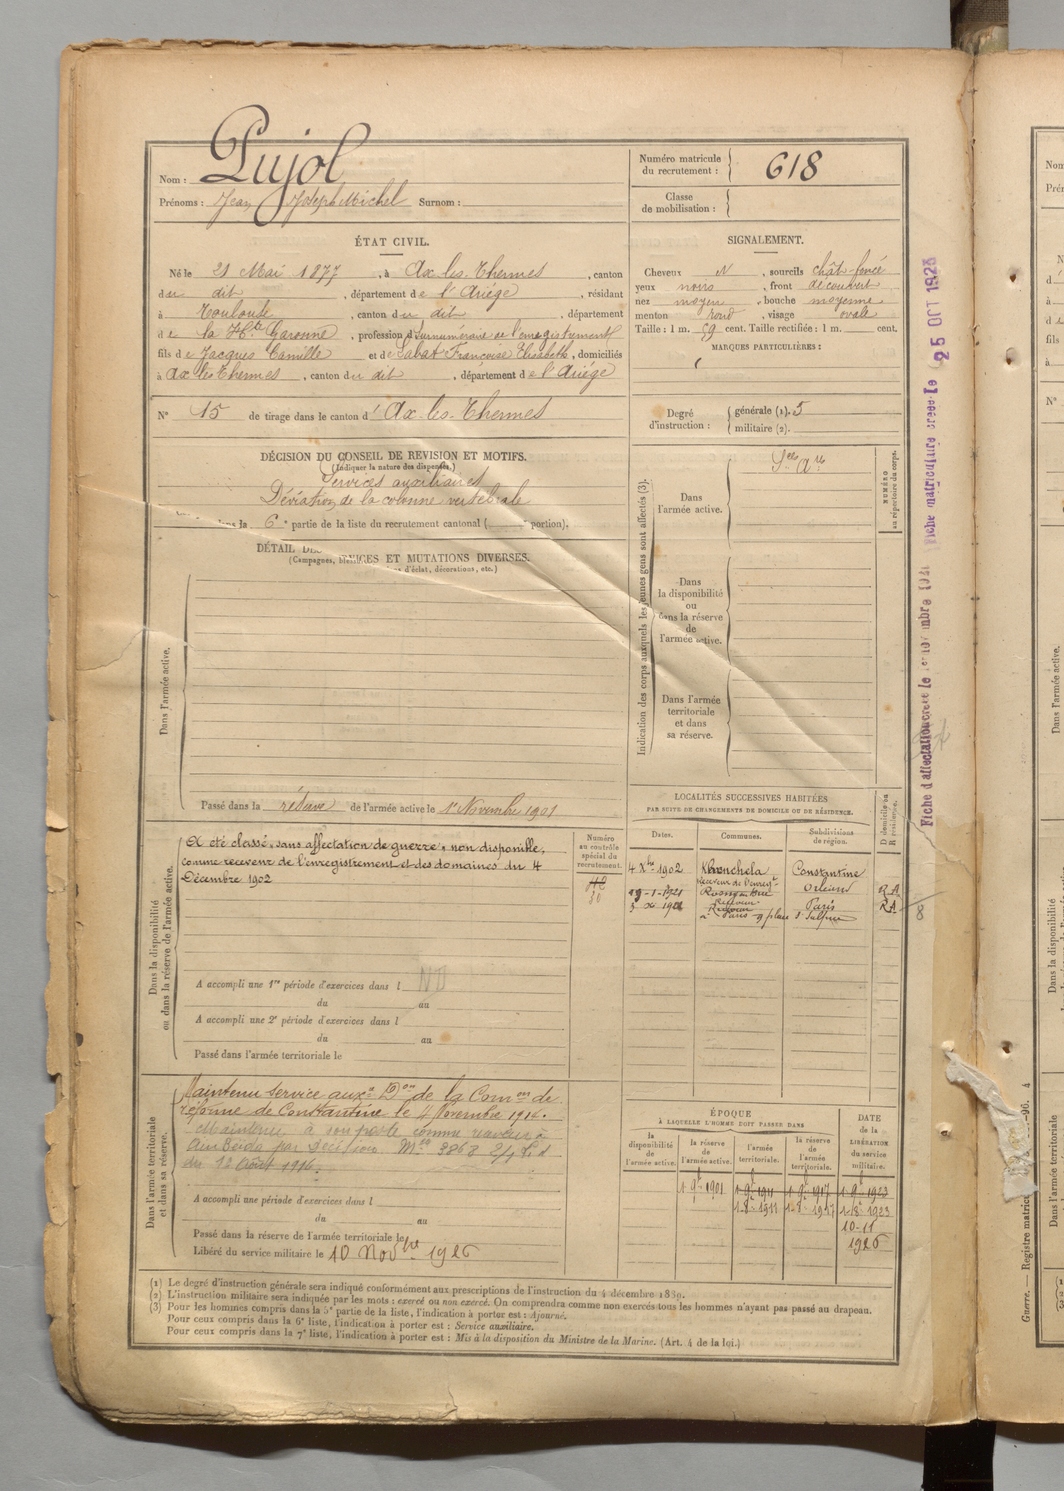 Nom : Pujol
Prénoms : Jean Joseph Michel Surnom :
Numéro matricule du recrutement : 618
Classe de mobilisation :
ÉTAT CIVIL.
Né le 21 Mai 1877, à Ax-les-Thermes, canton
du dit, département de l'Ariége, résidant
à Toulouse, canton du dit, département
de la Hte Garonne, profession d Surnuméraire de l'enregistrement
fils de Jacques Camille et de Sabat Françoise Elisabeth, domiciliés
à Ax les Thermes, canton du dit, département de l'Ariége
N° 15 de tirage dans le canton d' Ax-les-Thermes
SIGNALEMENT.
Cheveux N, sourcils chât-foncé
yeux noirs, front découvert
nez moyen, bouche moyenne
menton rond, visage ovale
Taille : 1 m. 59 cent. Taille rectifiée : 1 m. cent.
MARQUES PARTICULIÈRES :
Degré d'instruction : générale (1). 5
militaire (2).
DÉCISION DU CONSEIL DE REVISION ET MOTIFS.
(Indiquer la nature des dispenses.)
Services auxiliaires
Déviation de la colonne vertébrale
dans la 6e partie de la liste du recrutement cantonal ( portion).
DÉTAIL DES SERVICES ET MUTATIONS DIVERSES.
(Campagnes, d'éclat, décorations, etc.)
Dans l'armée active.
Passé dans la réserve de l'armée active le 1er Novembre 1901
Indication des corps auxquels les jeunes gens sont affectés (3).
Dans l'armée active.
Dans la disponibilité ou dans la réserve de l'armée active.
Dans l'armée territoriale et dans sa réserve.
NUMÉRO au répertoire du corps.
Dans la disponibilité ou dans la réserve de l'armée active.
A été classé, sans affectation de guerre, non disponible,
comme receveur de l'enregistrement et des domaines du 4
Décembre 1902
Numéro au contrôle spécial du recrutement.
A accompli une 1re période d'exercices dans l ND
du au
A accompli une 2e période d'exercices dans l
du au
Passé dans l'armée territoriale le
LOCALITÉS SUCCESSIVES HABITÉES
PAR SUITE DE CHANGEMENTS DE DOMICILE OU DE RÉSIDENCE.
Dates. Communes. Subdivisions de région. D domicile ou R résidence.
4 Xbre 1902 Khenchela Constantine
Orléans R.A
Paris RA
Dans l'armée territoriale et dans sa réserve.
Maintenu service auxre Don de la Comon de
réforme de Constantine le 4 Novembre 1914.
Maintenu à son poste comme receveur à
Ain Beida par décision Mlle 3868 2/1
du 12 Août 1916.
A accompli une période d'exercices dans l
du au
Passé dans la réserve de l'armée territoriale le
Libéré du service militaire le 10 Novbre 1926
ÉPOQUE
À LAQUELLE L'HOMME DOIT PASSER DANS
la disponibilité de l'armée active. la réserve de l'armée active. l'armée territoriale. la réserve de l'armée territoriale. DATE de la LIBÉRATION du service militaire.
1.9.1901 1.9.1911 1.9.1917 1.9.1923
1.8.1911 1.8.1917 1.8.1923
10-11
1926
(1) Le degré d'instruction générale sera indiqué conformément aux prescriptions de l'instruction du 4 décembre 1889.
(2) L'instruction militaire sera indiquée par les mots : exercé ou non exercé. On comprendra comme non exercés tous les hommes n'ayant pas passé au drapeau.
(3) Pour les hommes compris dans la 5e partie de la liste, l'indication à porter est : Ajourné.
Pour ceux compris dans la 6e liste, l'indication à porter est : Service auxiliaire.
Pour ceux compris dans la 7e liste, l'indication à porter est : Mis à la disposition du Ministre de la Marine. (Art. 4 de la loi.)
Fiche matriculaire créée le 25 OCT 1923
Guerre. — Registre matric